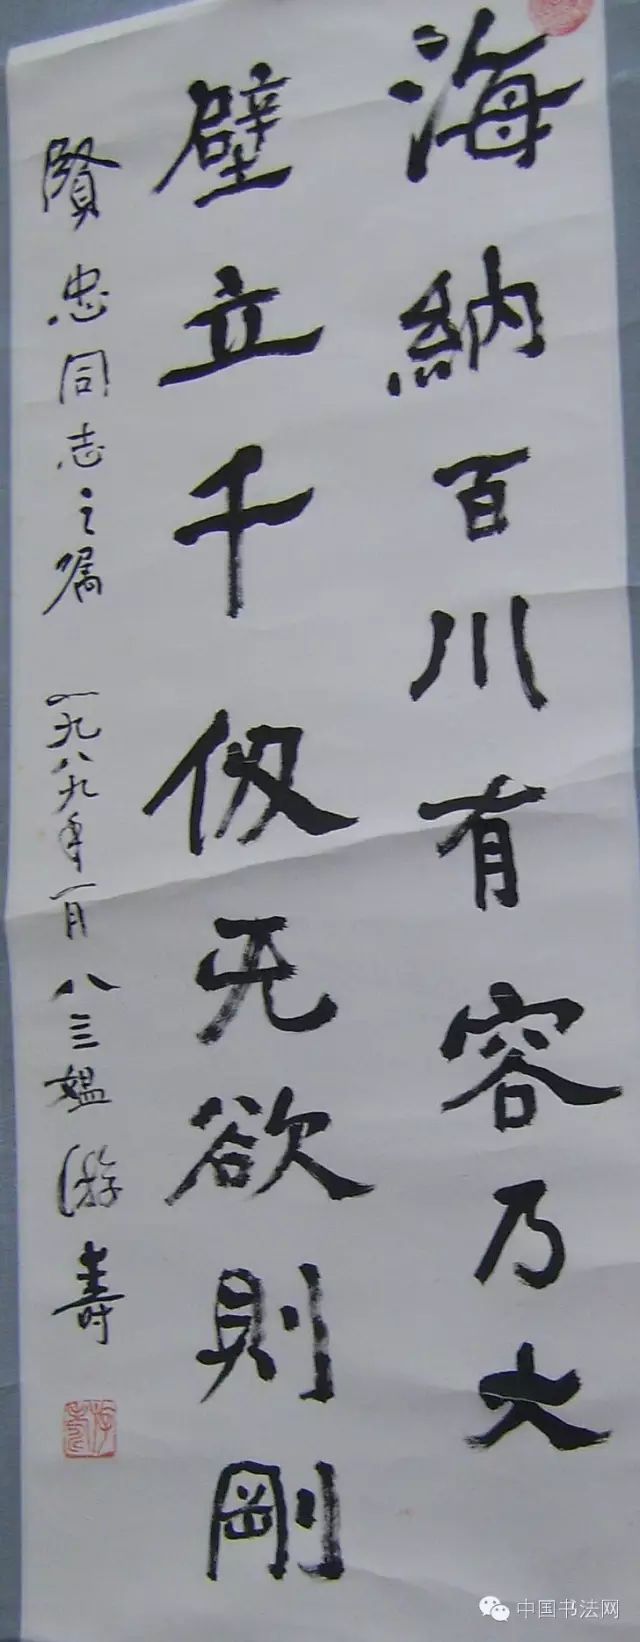 海納百川有容乃大
壁立千仞无欲則剛
賢忠同志之嘱 一九八九年一月 八三媪游寿
中国书法网